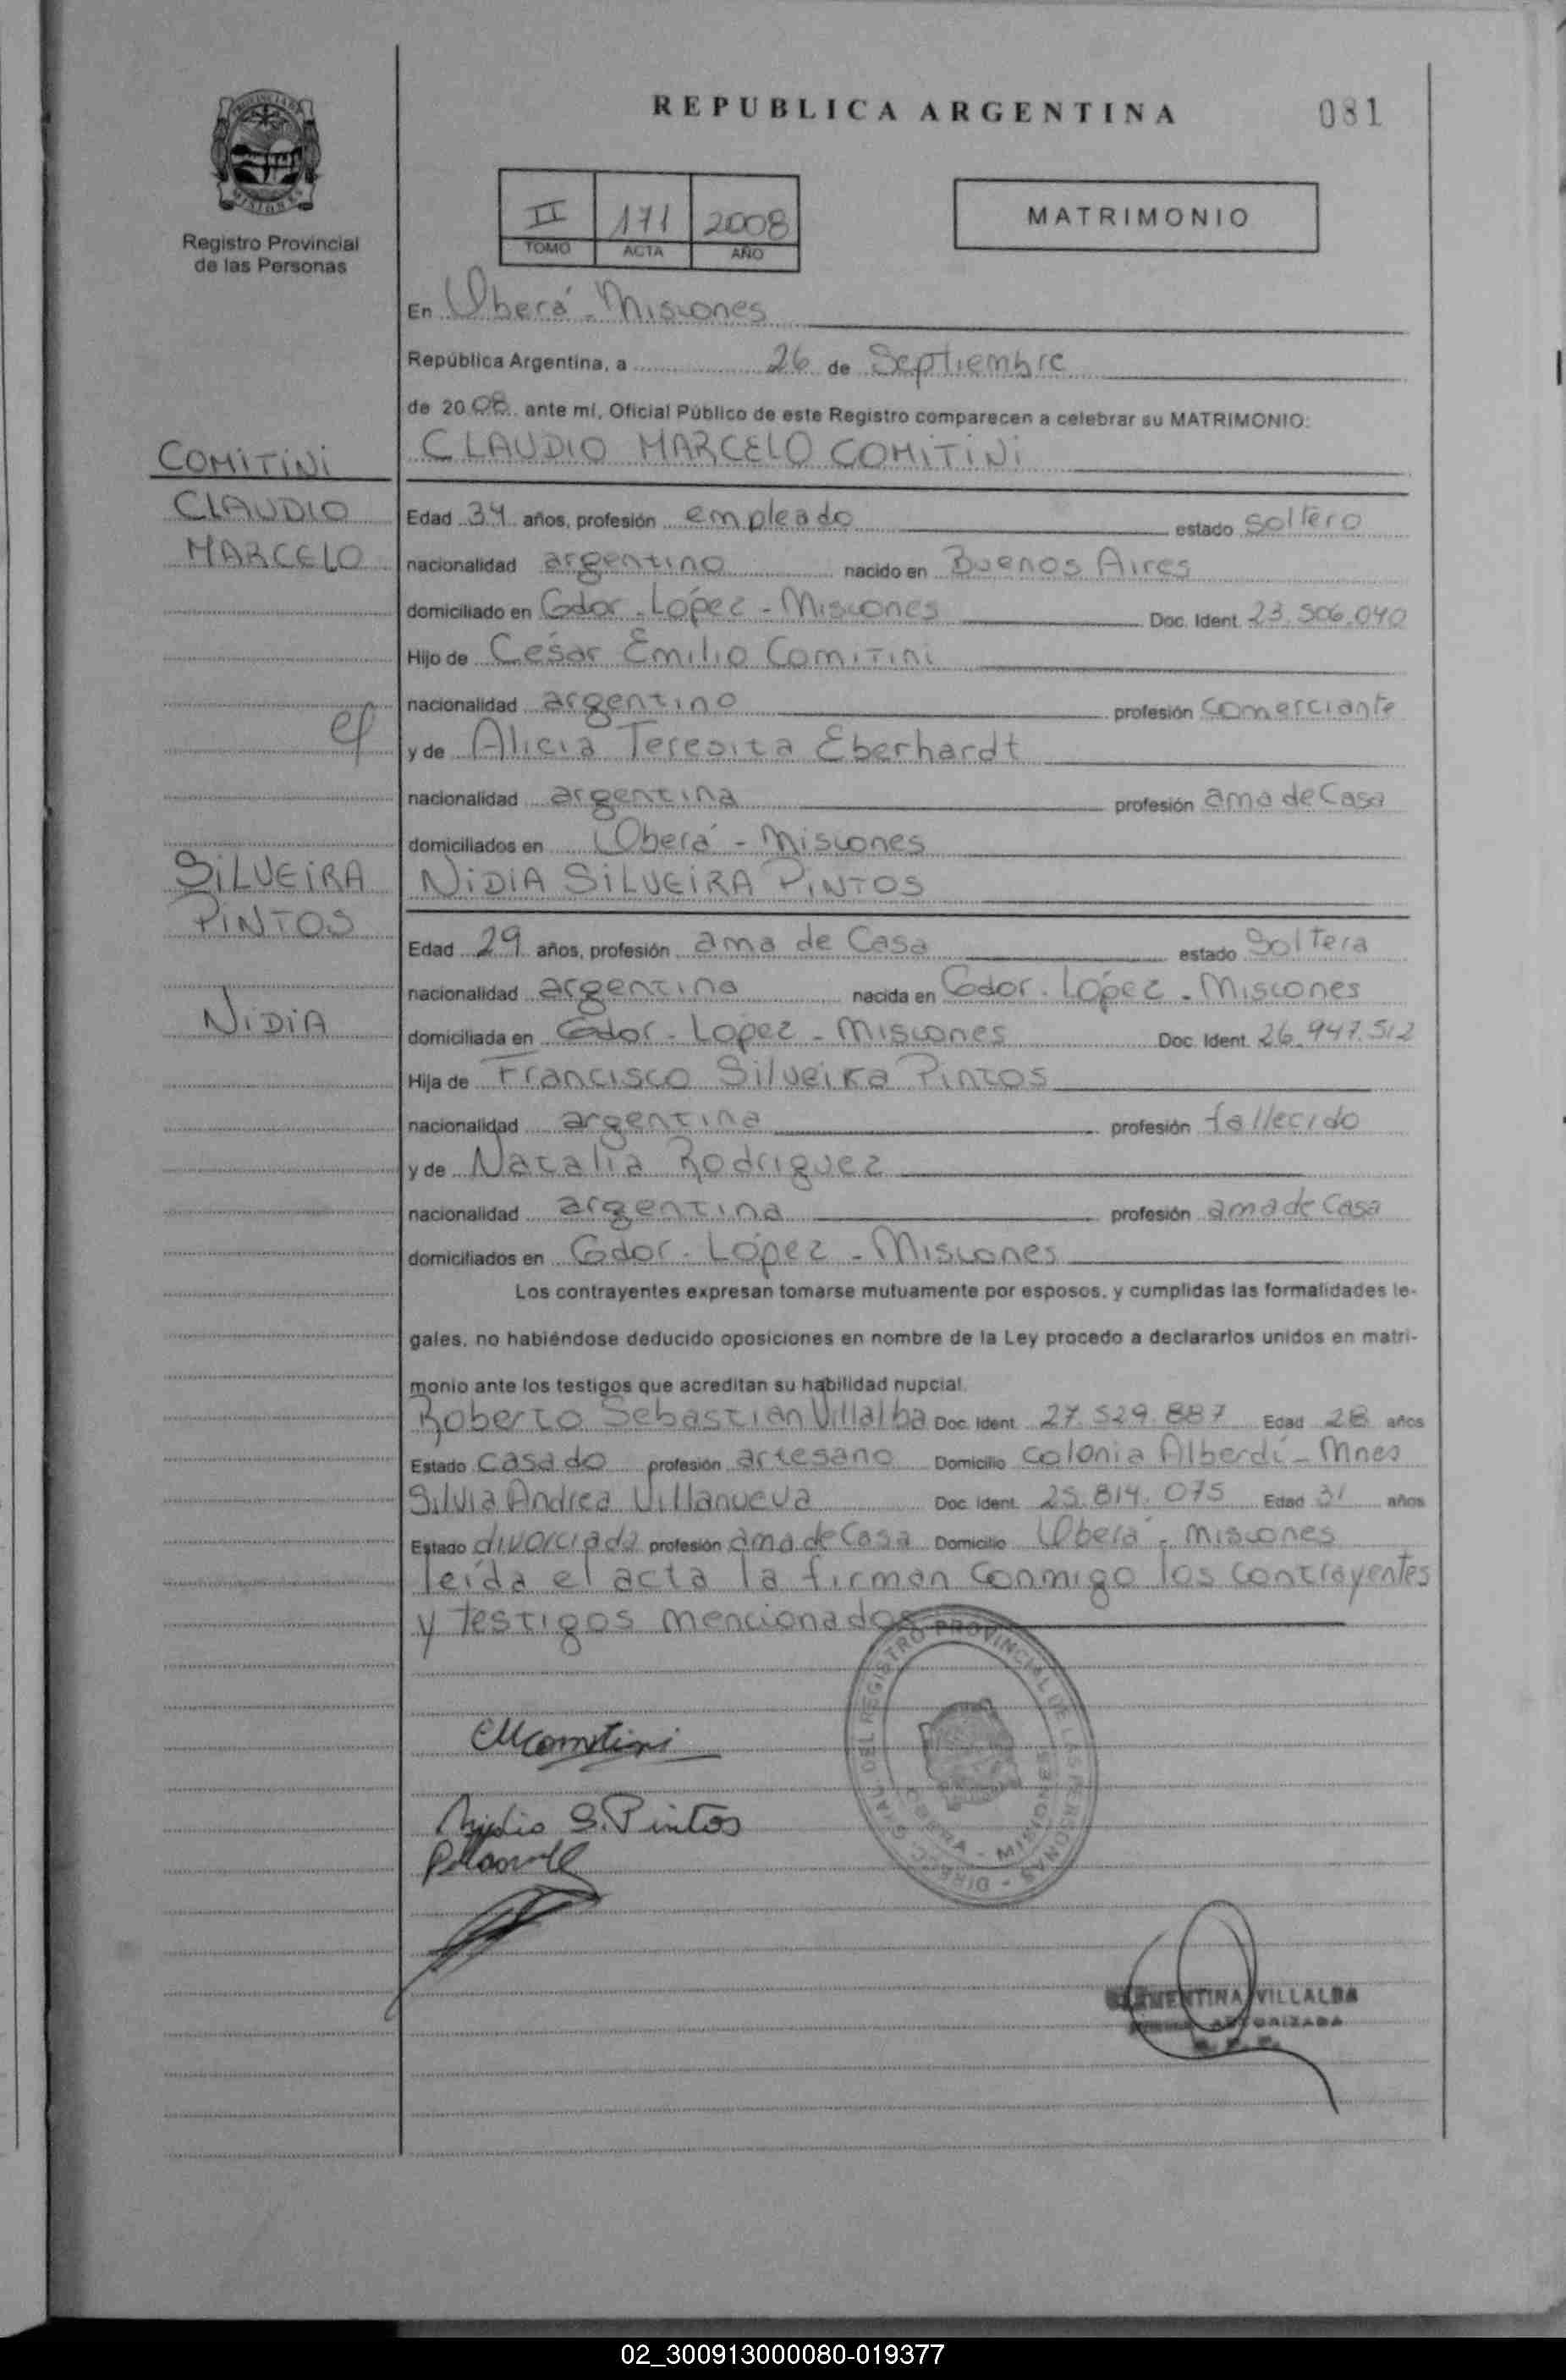 REPUBLICA ARGENTINA
081
Registro Provincial
de las Personas
II 171 2008
TOMO ACTA AÑO
MATRIMONIO
En Oberá - Misiones
República Argentina, a 26 de Septiembre
de 2008 ante mí, Oficial Público de este Registro comparecen a celebrar su MATRIMONIO:
COMITINI
CLAUDIO
MARCELO
CLAUDIO MARCELO COMITINI
Edad 34 años, profesión empleado estado soltero
nacionalidad argentino nacido en Buenos Aires
domiciliado en Gdor. López - Misiones Doc. Ident. 23.506.040
Hijo de César Emilio Comitini
nacionalidad argentino profesión comerciante
y de Alicia Teresita Eberhardt
nacionalidad argentina profesión ama de Casa
domiciliados en Oberá - Misiones
SILVEIRA
PINTOS
NIDIA
NIDIA SILVEIRA PINTOS
Edad 29 años, profesión ama de Casa estado Soltera
nacionalidad argentina nacida en Gdor. López - Misiones
domiciliada en Gdor - López - Misiones Doc. Ident. 26.947.512
Hija de Francisco Silveira Pintos
nacionalidad argentina profesión fallecido
y de Natalia Rodriguez
nacionalidad argentina profesión ama de Casa
domiciliados en Gdor - López - Misiones
Los contrayentes expresan tomarse mutuamente por esposos, y cumplidas las formalidades le-
gales, no habiéndose deducido oposiciones en nombre de la Ley procedo a declararlos unidos en matri-
monio ante los testigos que acreditan su habilidad nupcial.
Roberto Sebastian Villalba Doc. Ident. 27.529.887 Edad 28 años
Estado Casado profesión artesano Domicilio colonia Alberdi - Mnes
Silvia Andrea Villanueva Doc. Ident. 25.814.075 Edad 31 años
Estado divorciada profesión ama de Casa Domicilio Oberá - Misiones
leída el acta la firman Conmigo los contrayentes
y testigos mencionados
CMComitini
Nidia S. Pintos
CLEMENTINA VILLALBA
FIRMA AUTORIZADA
02_300913000080-019377